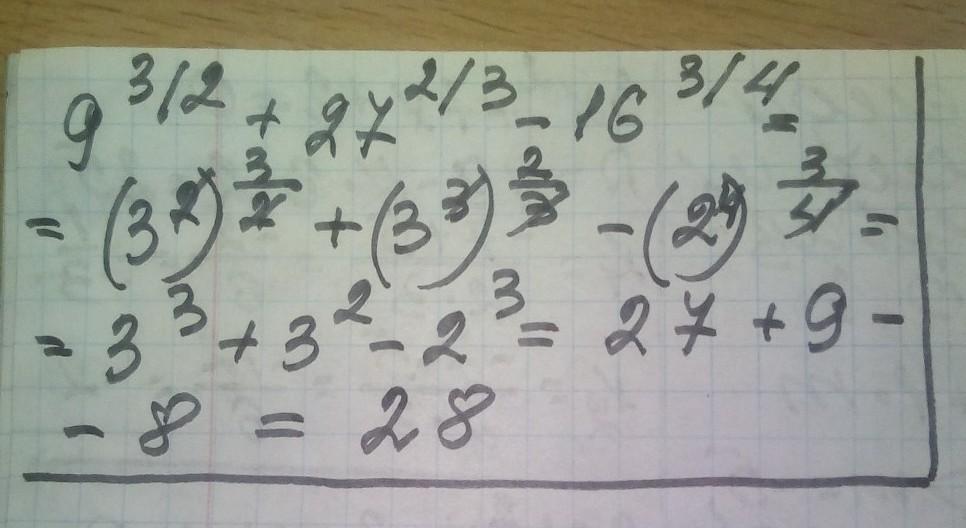 9^3/2 + 27^2/3 - 16^3/4 =
= (3^2)^3/2 + (3^3)^2/3 - (2^4)^3/4 =
= 3^3 + 3^2 - 2^3 = 27 + 9 -
- 8 = 28